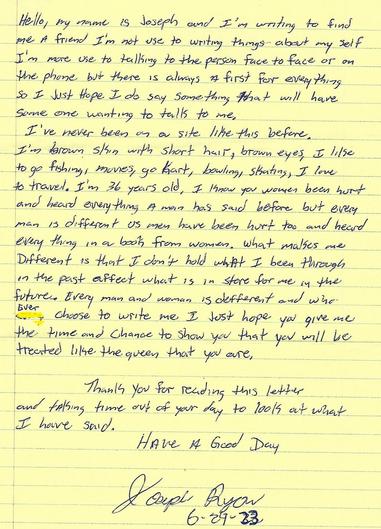 Hello, my name is Joseph and I'm writing to find
me A friend I'm not use to writing things about my self
I'm more use to talking to the person face to face or on
the phone but there is always A first for everything
so I Just Hope I do say something that will have
some one wanting to talk to me.
I've never been on a site like this before.
I'm brown skin with short hair, brown eyes, I like
to go fishing, movies, go Kart, bowling, skating, I love
to travel. I'm 36 years old, I know you women been hurt
and heard everything A man has said before but every
man is different us men have been hurt too and heard
every thing in a book from women. What makes me
Different is that I don't hold what I been through
in the past effect what is in store for me in the
future. Every man and woman is defferent and who
ever choose to write me I Just hope you give me
the time and chance to show you that you will be
treated like the queen that you are.
Thank you for reading this letter
and taking time out of your day to look at what
I have said.
HAVE A Good Day
Joseph
6-29-23